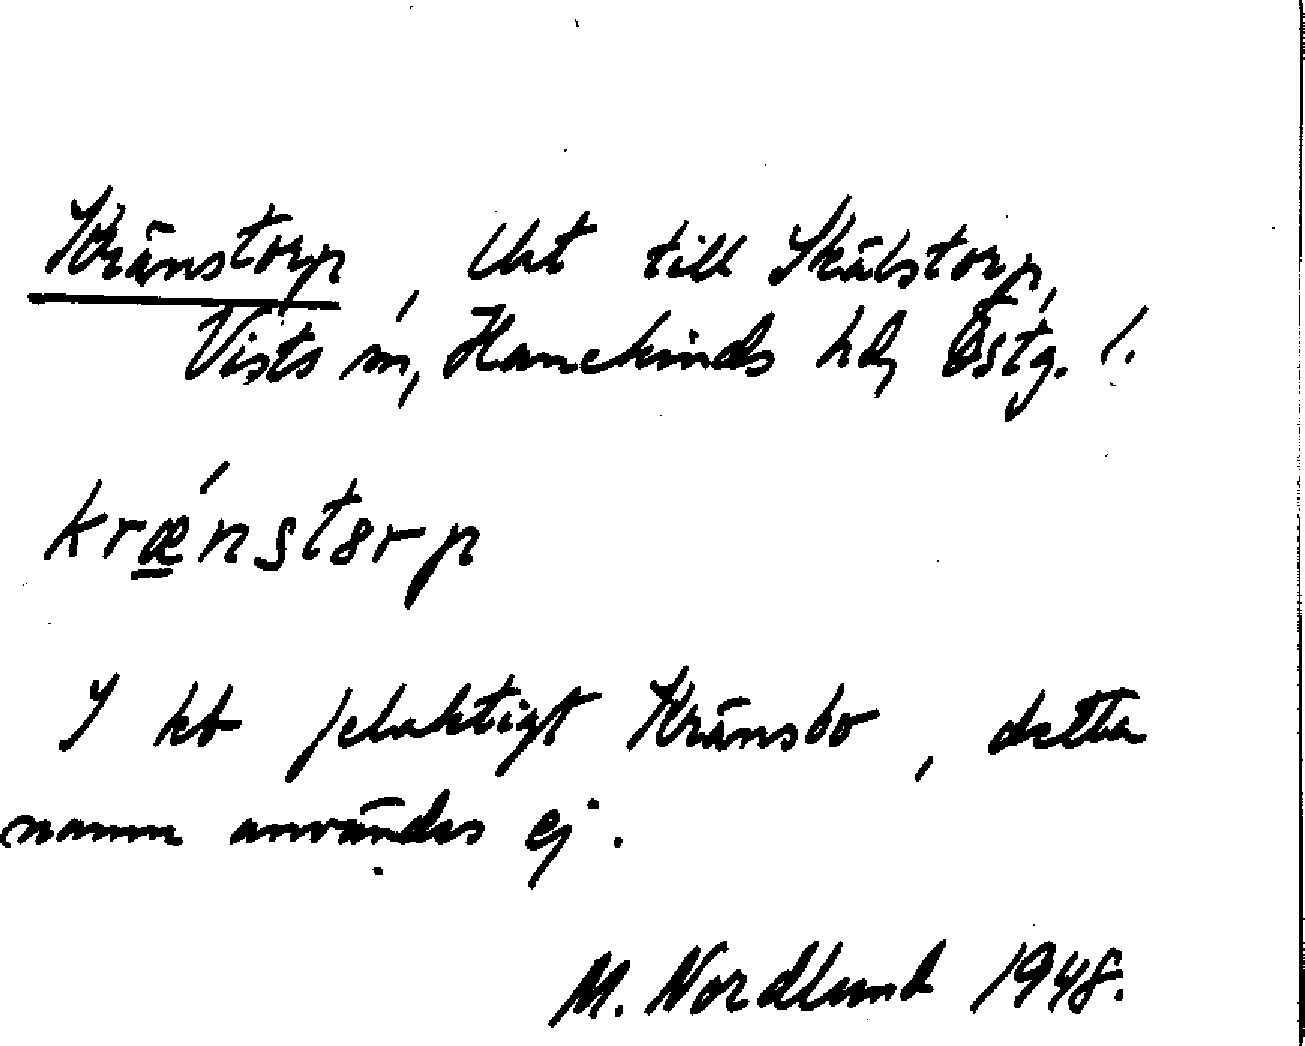 Kränstorp, lht till Skälstorp,
Vists sn, Hanekinds hd, Östg. l.
krǽ̲nstɜrp
I kb felaktigt Kränsbo, detta
namn användes ej.
M. Nordlund 1948.